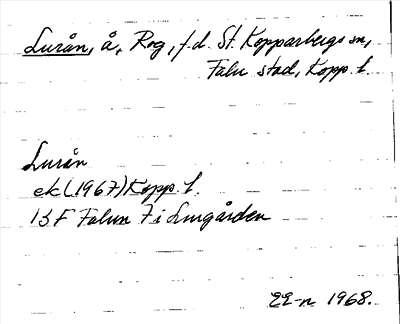 Lurån, å, Rog, f.d. St. Kopparbergs sn,
Falu stad, Kopp. l.
Lurån
ek (1967) Kopp. l.
13 F Falun 7 i Lurgården
22-n 1968.